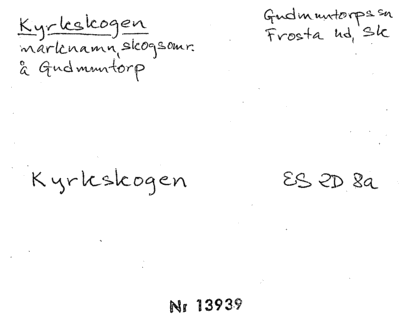 Kyrkskogen
marknamn, skogsomr.
å Gudmuntorp
Gudmuntorps sn
Frosta hd, Sk
Kyrkskogen
ES 2D 8a
Nr 13939